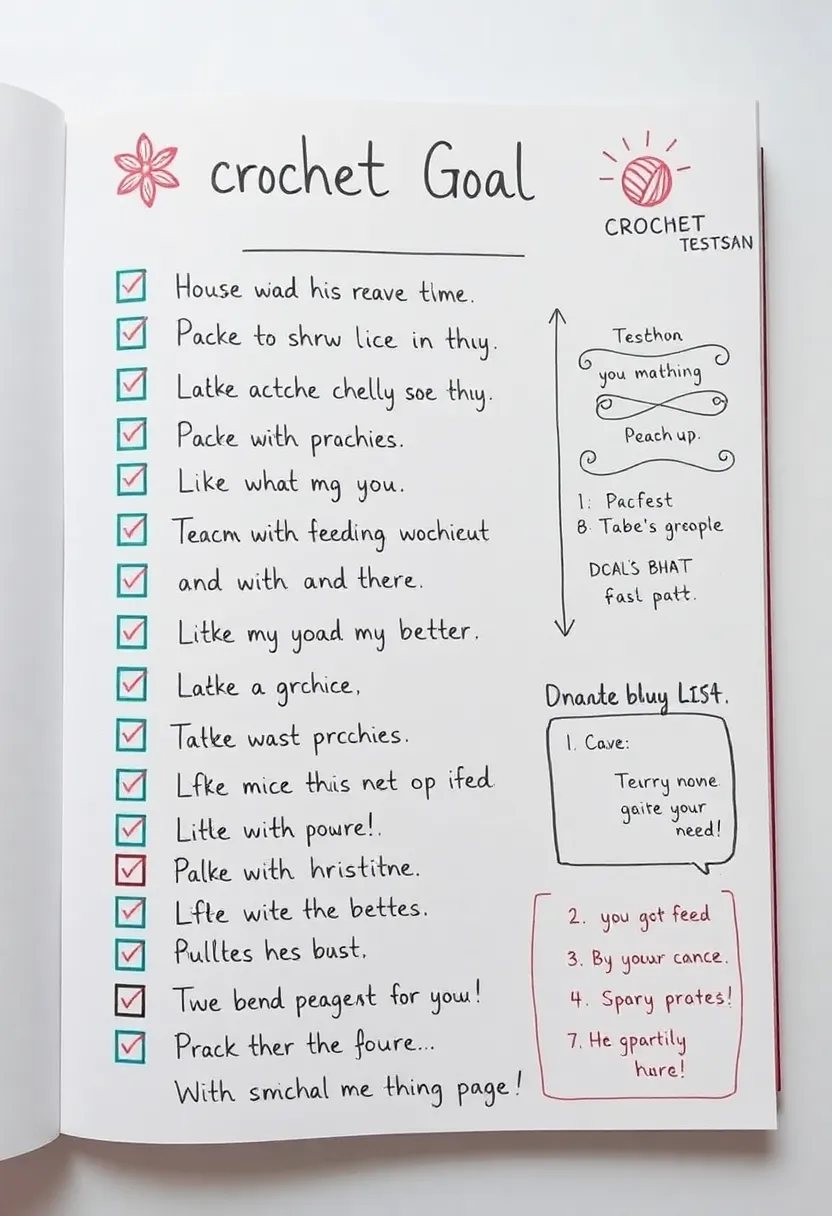 crochet Goal
CROCHET
TESTSAN
House wad his reave time.
Packe to shrw lice in thiy.
Latke actche chelly soe thiy.
Packe with prachies.
Like what mg you.
Teacm with feeding wochieut
and with and there.
Litke my yoad my better.
Latke a grchice,
Tatke wast prcchies.
Lfke mice this net op ifed
Litle with powre!.
Palke with hristitne.
Lfte wite the bettes.
Pulltes hes bust,
Twe bend peagest for you!
Prack ther the foure...
With smichal me thing page!
Testhon
you mathing
Peach up.
1: Pacfest
8. Tabe's greople
DCAL'S BHAT
fasl patt.
Dnante bluy LIS4.
1. Cave:
Terry none
gaite your
need!
2. you got feed
3. By youur cance.
4. Spary prates!
7. He gpartily
hure!